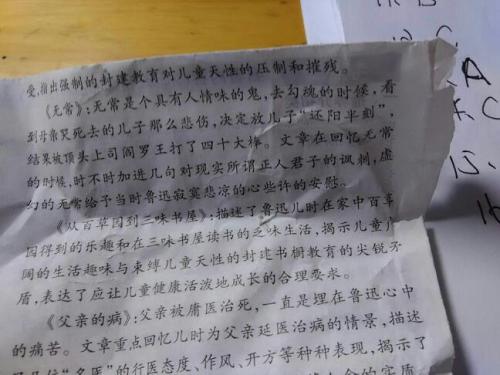 受,指出强制的封建教育对儿童天性的压制和摧残。
《无常》:无常是个具有人情味的鬼,去勾魂的时候,看
到母亲哭死去的儿子那么悲伤,决定放儿子“还阳半刻”,
结果被顶头上司阎罗王打了四十大棒。文章在回忆无常
的时候,时不时加进几句对现实所谓正人君子的讽刺,虚
幻的无常给予当时鲁迅寂寞悲凉的心些许的安慰。
《从百草园到三味书屋》:描述了鲁迅儿时在家中百草
园得到的乐趣和在三味书屋读书的乏味生活,揭示儿童广
阔的生活趣味与束缚儿童天性的封建书橱教育的尖锐矛
盾,表达了应让儿童健康活泼地成长的合理要求。
《父亲的病》:父亲被庸医治死,一直是埋在鲁迅心中
的痛苦。文章重点回忆儿时为父亲延医治病的情景,描述
“名医”的行医态度、作风、开方等种种表现,揭示了
的实质
A
C
15.